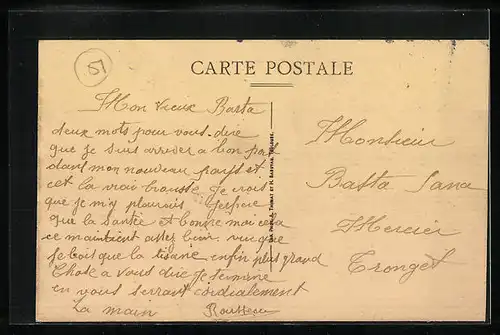 51
CARTE POSTALE
Mon vieux Basta
deux mots pour vous dire
que je suis arriver a bon port
dans mon nouveau pays et
cet la vrai brousse je crois
que je m'y plairais j'espère
que la santée et bonne moi cela
ce maintient assez bien vue que
je bois que la tisane enfin plus grand
Chose a vous dire je termine
en vous serrant cordialement
La main Rousseau
Monsieur
Batta
Mercier
Tronget